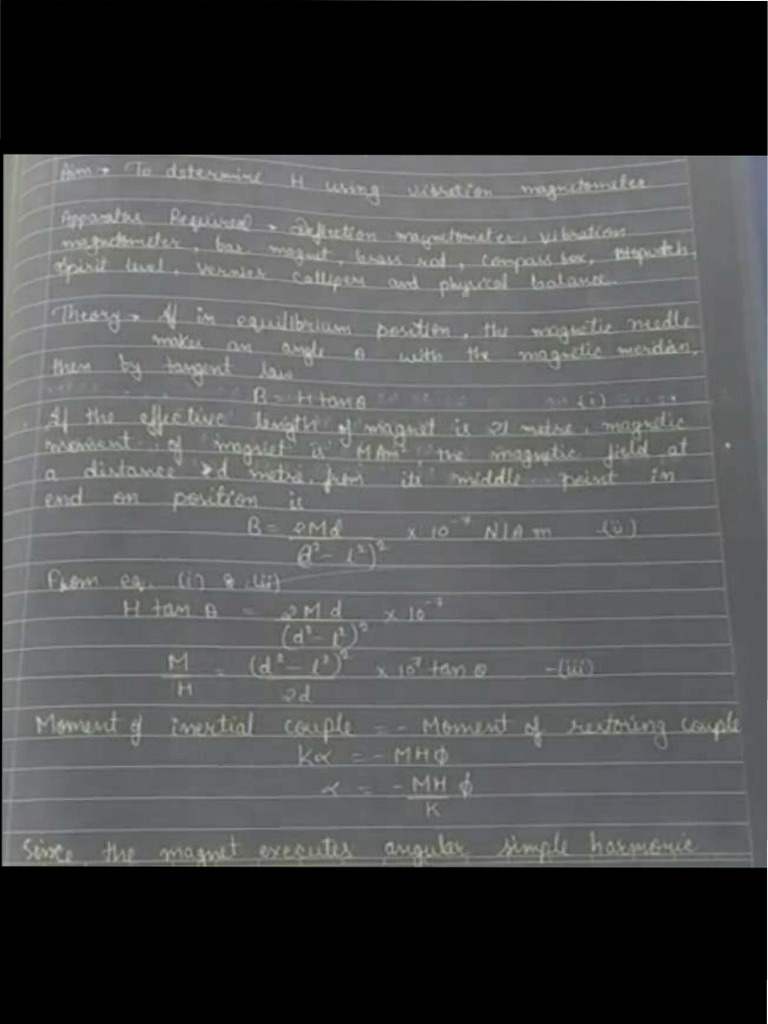 Aim → To determine H using vibration magnetometer
Apparatus Required → Deflection magnetometer, vibration
magnetometer, bar magnet, brass rod, compass box, stopwatch,
spirit level, vernier callipers and physical balance.
Theory → If in equilibrium position, the magnetic needle
makes an angle θ with the magnetic meridian,
then by tangent law
B = H tan θ (i)
If the effective length of magnet is 2l metre, magnetic
moment of magnet is M Am² the magnetic field at
a distance d metre from its middle point in
end on position is
B = 2Md / (d² - l²)² × 10⁻⁷ N/A m -(ii)
From eq. (i) & (ii)
H tan θ = 2Md / (d² - l²)² × 10⁻⁷
M/H = (d² - l²)² / 2d × 10⁷ tan θ -(iii)
Moment of inertial couple = - Moment of restoring couple
Kα = - MHϕ
α = - MH/K ϕ
Since, the magnet executes angular simple harmonic